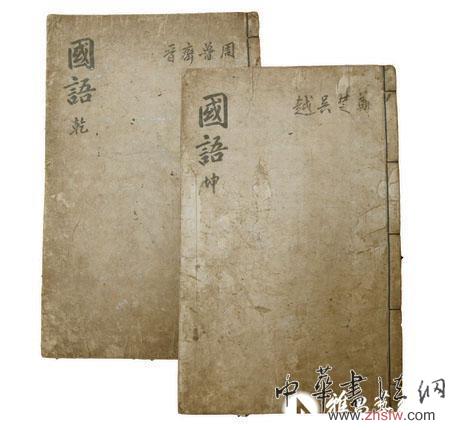 周魯齊晉
國語
乾
鄭楚吳越
國語
坤
中華書法網
www.zhsfw.com